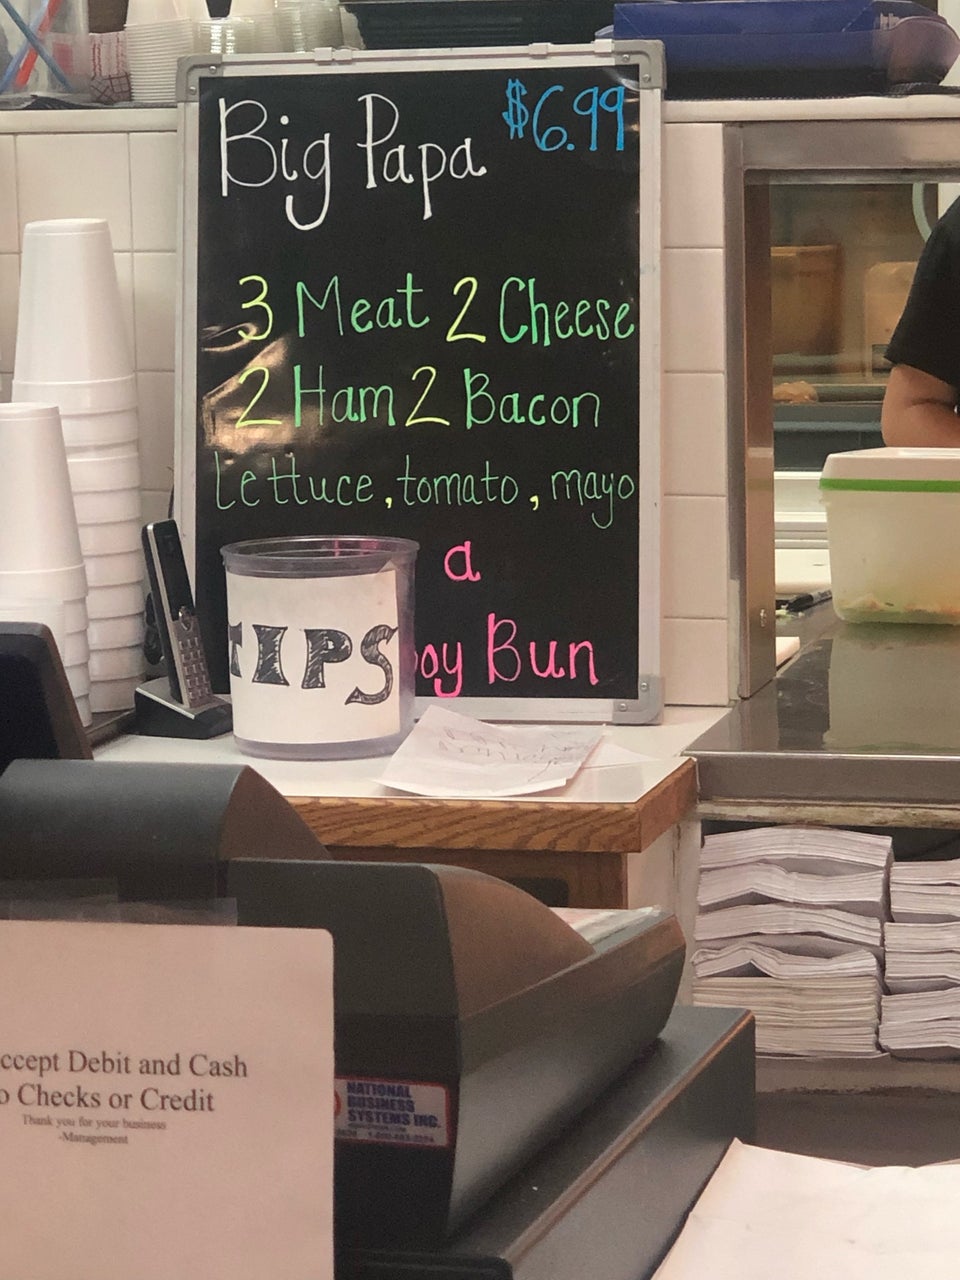 Big Papa $6.99
3 Meat 2 Cheese
2 Ham 2 Bacon
Lettuce, tomato, mayo
a
oy Bun
TIPS
ccept Debit and Cash
o Checks or Credit
Thank you for your business
-Management
NATIONAL
BUSINESS
SYSTEMS INC.